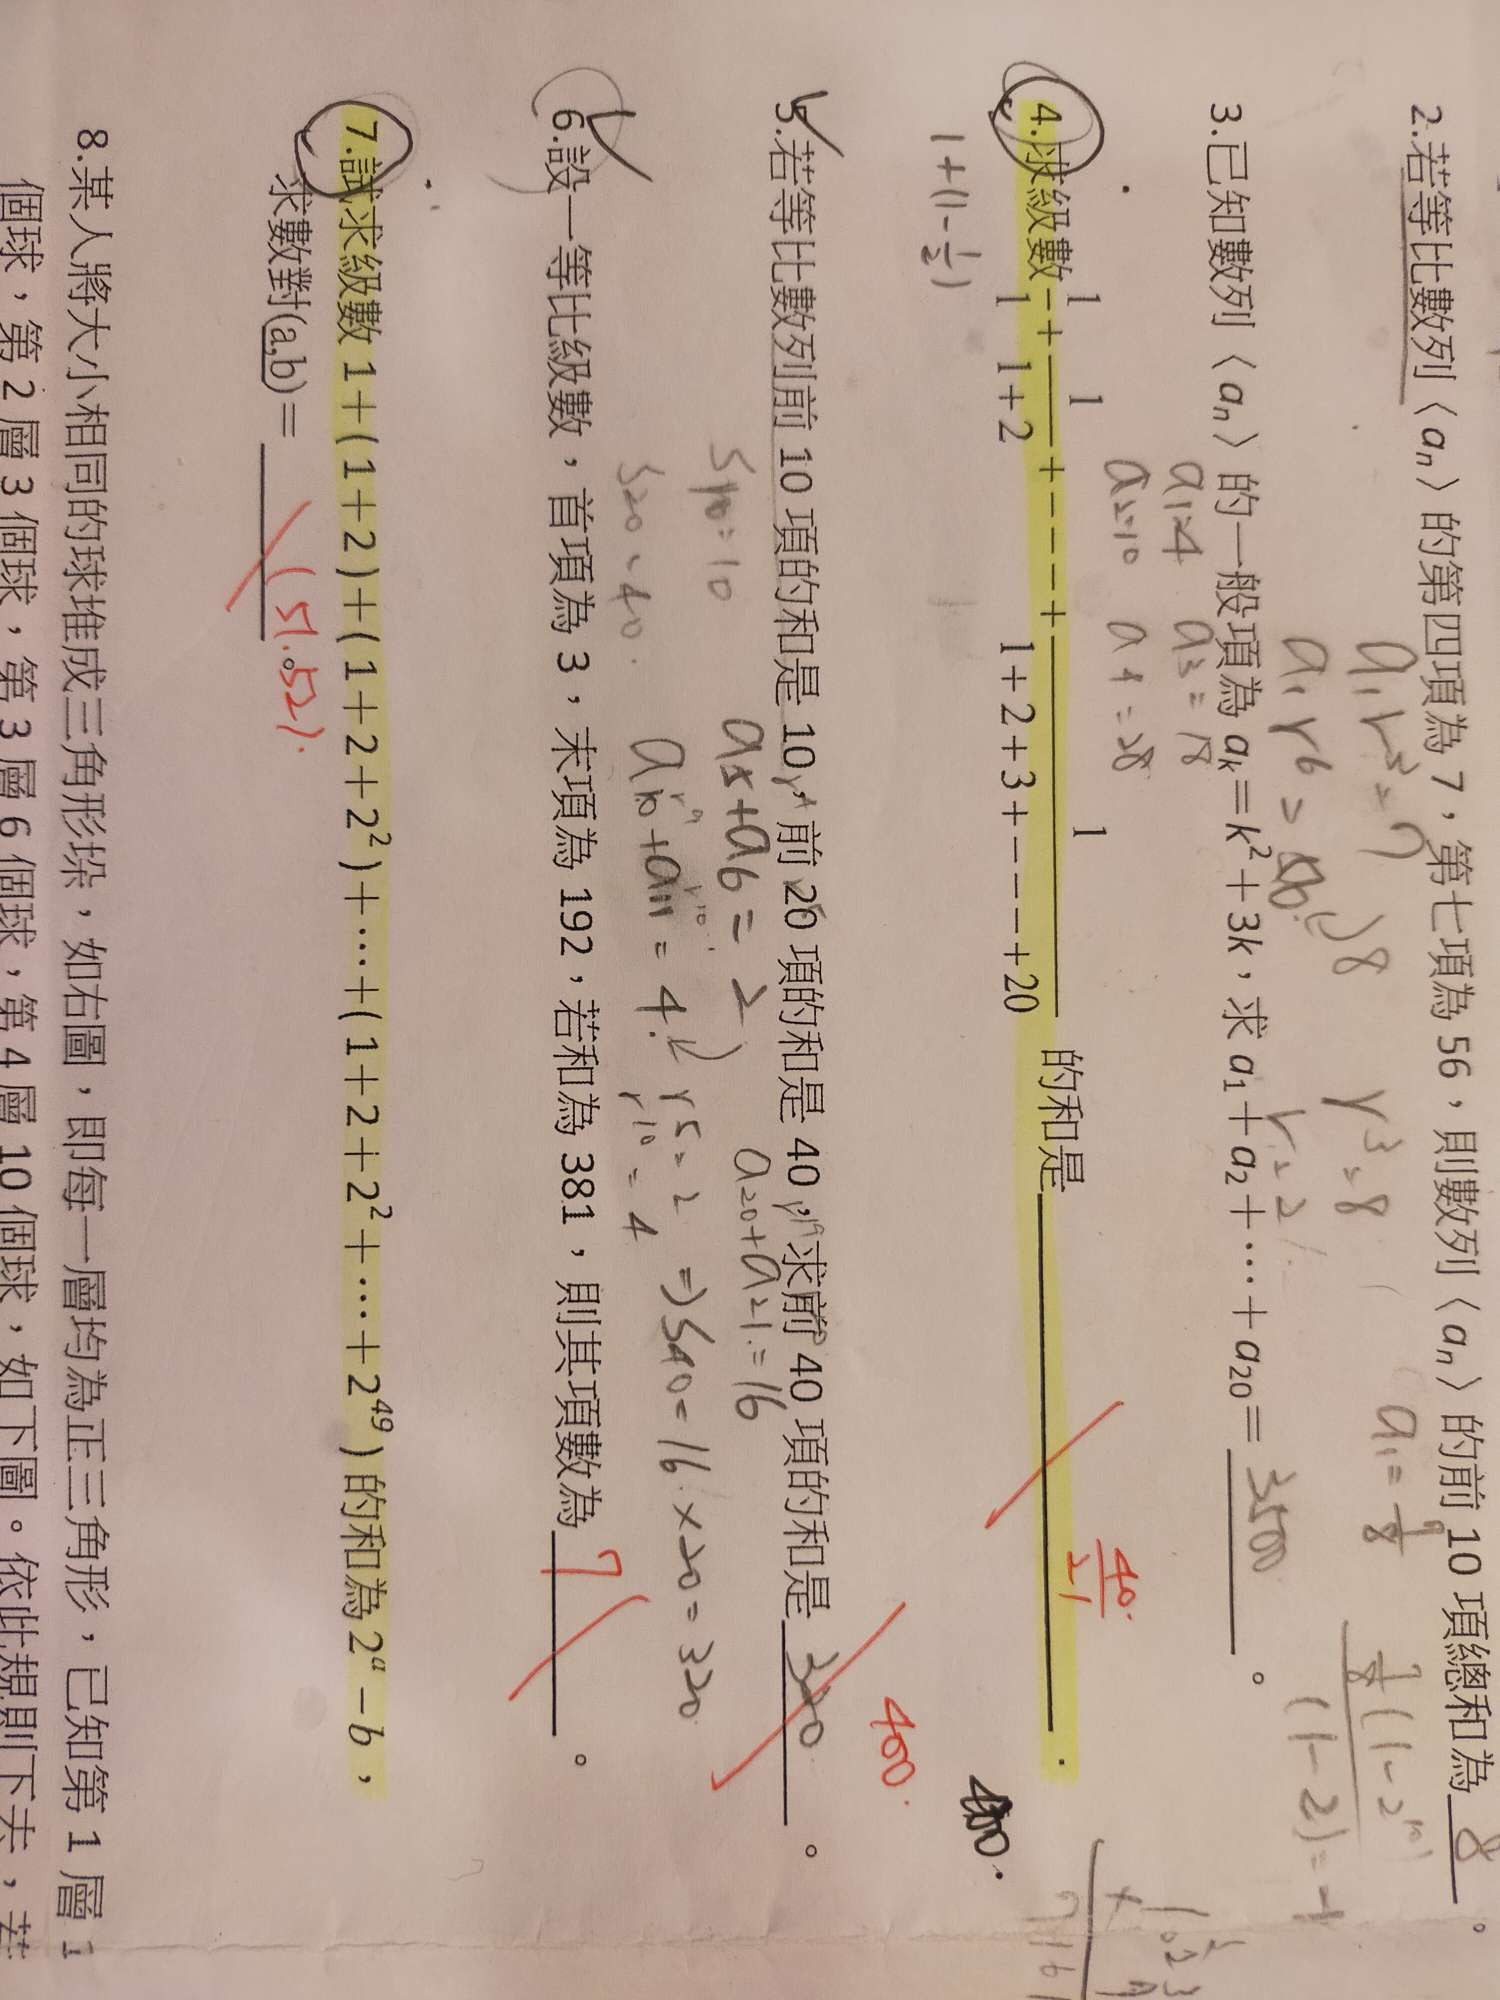 2.若等比數列〈aₙ〉的第四項為 7，第七項為 56，則數列〈aₙ〉的前 10 項總和為
a₁r³=7
a₁r⁶=56
)8
r³=8
r=2
3.已知數列〈aₙ〉的一般項為 aₖ＝k²＋3k，求 a₁＋a₂＋⋯＋a₂₀＝ 3500 。
a₁=4 a₃=18
a₂=10 a₄=28
4.求級數 1/1 + 1/(1+2) + --- + 1/(1+2+3+---+20) 的和是 .
40/21
1+(1-1/2)
5.若等比數列前 10 項的和是 10，前 20 項的和是 40，求前 40 項的和是 320 。
400.
S₁₀=10 a₅+a₆=2 a₂₀+a₂₁=16
S₂₀=40. a₁₀+a₁₁=4 r⁵=2 ⇒S₄₀=16×20=320
r¹⁰=4
6.設一等比級數，首項為 3，末項為 192，若和為 381，則其項數為 7 。
7.試求級數 1＋(1＋2)＋(1＋2＋2²)＋⋯＋(1＋2＋2²＋⋯＋2⁴⁹)的和為 2ᵃ－b，
求數對(a,b)＝ (51.52).
8.某人將大小相同的球堆成三角形垛，如右圖，即每一層均為正三角形，已知第 1 層 1
個球，第 2 層 3 個球，第 3 層 6 個球，第 4 層 10 個球，如下圖。依此規則下去，若